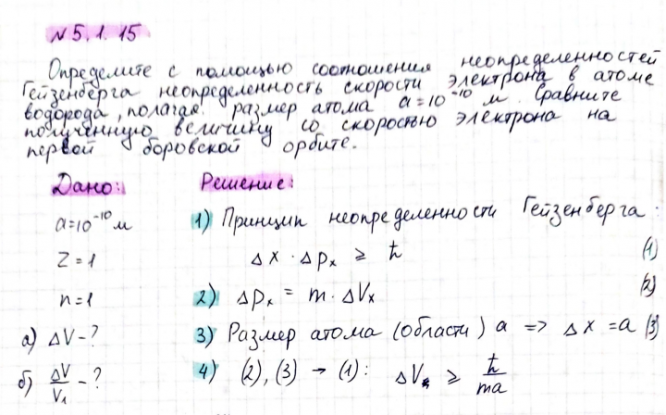 № 5.1.15
Определите с помощью соотношения неопределенностей
Гейзенберга неопределенность скорости электрона в атоме
водорода, полагая размер атома a=10⁻¹⁰ м. Сравните
полученную величину со скоростью электрона на
первой боровской орбите.
Дано:
a=10⁻¹⁰ м
Z=1
n=1
а) ΔV-?
б) ΔV/V₁ -?
Решение:
1) Принцип неопределенности Гейзенберга:
Δx · Δpₓ ≥ ħ (1)
2) Δpₓ = m·ΔVₓ (2)
3) Размер атома (области) a => Δx = a (3)
4) (2), (3) → (1): ΔVₓ ≥ ħ/ma